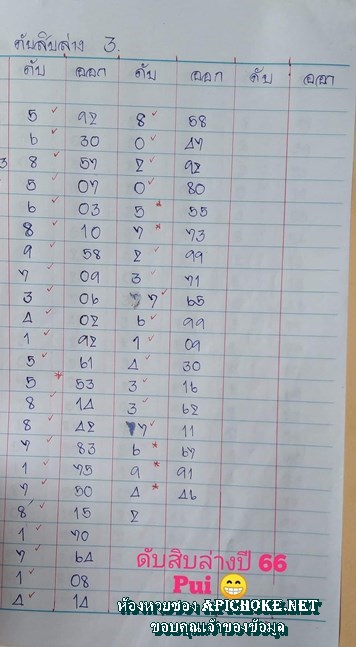 ดับสิบล่าง 3.
ดับ ออก ดับ ออก ดับ ออก
5 ✓ 92 8 ✓ 58
6 ✓ 30 0 ✓ 47
3 8 ✓ 57 2 ✓ 92
5 ✓ 07 0 ✓ 80
6 ✓ 03 5 * 55
8 ✓ 10 7 * 73
9 ✓ 58 2 ✓ 99
7 ✓ 09 3 ✓ 71
3 ✓ 06 7 ✓ 65
4 ✓ 02 6 ✓ 99
1 ✓ 92 1 ✓ 09
5 ✓ 61 4 ✓ 30
5 * 53 3 ✓ 16
8 ✓ 14 3 ✓ 62
8 ✓ 42 7 ✓ 11
7 ✓ 83 6 * 67
1 ✓ 75 9 * 91
7 ✓ 50 4 * 46
8 ✓ 15 2
1 ✓ 70
7 ✓ 64
1 ✓ 08
4 ✓ 14
ดับสิบล่างปี 66
Pui 😁
ห้องหวยซอง APICHOKE.NET
ขอบคุณเจ้าของข้อมูล